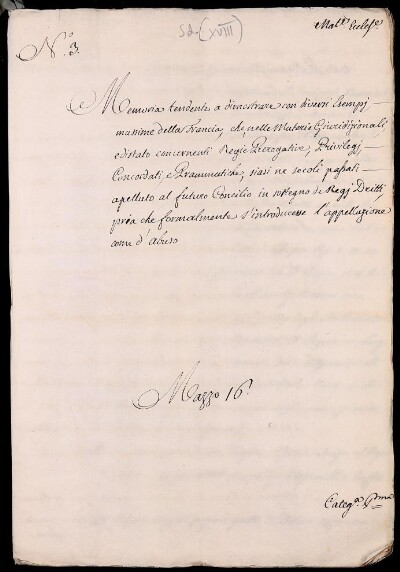 Sd. (XVIII)
Mat.ie Eccles.e
N.o 3.
Memoria tendente a dimostrare con diversi Esempj
massime della Francia, che nelle Materie Giurisdizionali
e di stato concernenti Regie Prerogative, Privilegj
Concordati, e Prammatiche, siasi ne' secoli passati
apellato al futuro Concilio in sostegno de Regj Dritti,
pria che formalmente s'introducesse l'appellazione
come d'abuso
Mazzo 16.o
Categ.a P.ma